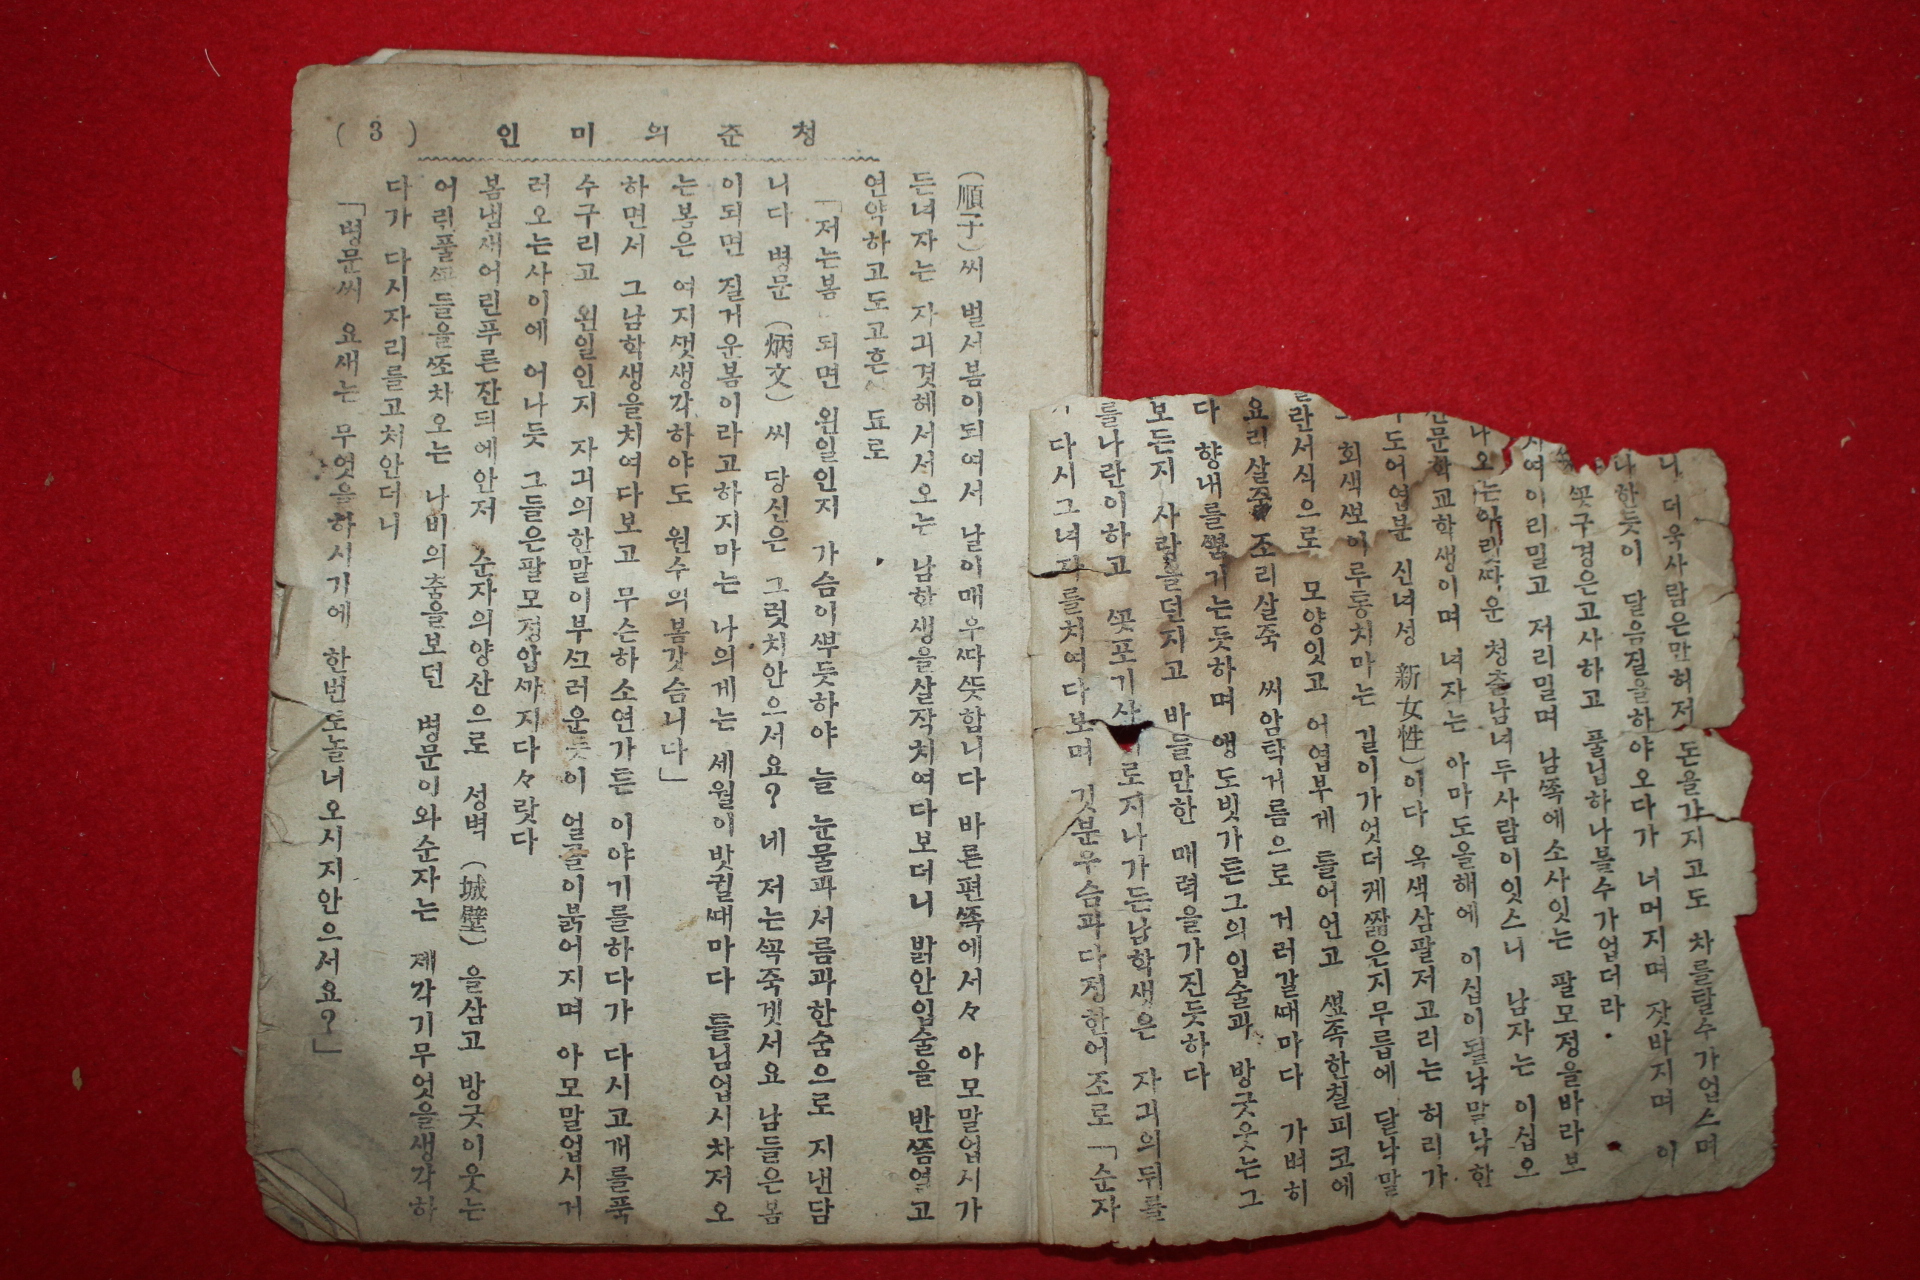 니 더욱사람은만허저 돈을가지고도 차를탈수가업스며
나한듯이 달음질을하야오다가 너머지며 잣바지며 이
꼿구경은고사하고 풀닙하나볼수가업더라.
서여이리밀고 저리밀며 남쪽에소사잇는 팔모정을바라보
나오는 청춘남녀두사람이잇스니 남자는 이십오
전문학교학생이며 녀자는 아마도올해에 이십이될낙말낙한
도어엽분 신녀성 新女性)이다 옥색삼팔저고리는 허리가
회색뽀이루통치마는 길이가엇더케짧은지무릅에 달낙말
란서식으로 모양잇고 어엽부게 틀어언고 뾰족한칠피코에
요리살죽 조리살죽 써암탁거름으로 거러갈때마다 가벼히
다 향내를뿜기는듯하며 앵도빗가튼그의입술과 방긋웃는그
보든지 사랑을던지고 바들만한 매력을가진듯하다
를나란이하고 꼿포기사 로지나가든남학생은 자긔의뒤를
다시그녀자를치여다보며 깃분우슴과다정한어조로「순자
(3) 청춘의미인
(順子)씨 벌서봄이되여서 날이매우따뜻합니다 바른편쪽에서서々 아모말업시가
든녀자는 자긔겻헤서서오는 남학생을살작치여다보더니 밝안입술을 반쯤열고
연약하고도고흔 됴로
「저는봄 되면 왼일인지 가슴이뿌듯하야 늘 눈물과서름과한숨으로 지낸담
니다 병문(炳文)씨 당신은 그럿치안으서요? 네 저는꼭죽겟서요 남들은봄
이되면 질거운봄이라고하지마는 나의게는 세월이밧귈때마다 틀님업시차저오
는봄은 여지껏생각하야도 원수의봄갓슴니다」
하면서 그남학생을치여다보고 무슨하소연가튼 이야기를하다가 다시고개를푹
수구리고 왼일인지 자긔의한말이부끄러운듯이 얼골이붉어지며 아모말업시거
러오는사이에 어나듯 그들은팔모정압까지다々랏다
봄냄새어린푸른잔듸에안저 순자의양산으로 성벽(城壁)을삼고 방긋이웃는
어린풀 들을또차오는 나비의춤을보던 병문이와순자는 제각기무엇을생각하
다가 다시자리를고처안더니
「병문씨 요새는 무엇을하시기에 한번도놀너오시지안으서요?」